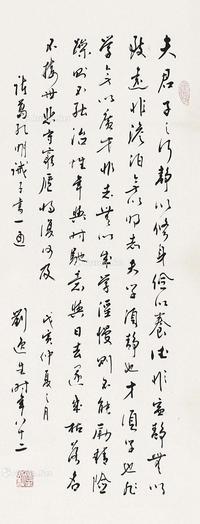 夫君子之行静以修身俭以养德非宁静无以
致远非澹泊无以明志夫学须静也才须学也非
学无以广才非志无以成学淫慢则不能励精险
躁则不能治性年与时驰志与日去遂成枯落多
不接世悲守穷庐将复何及
诸葛孔明诫子书一通
戊寅仲夏之月
刘迺生时年八十二